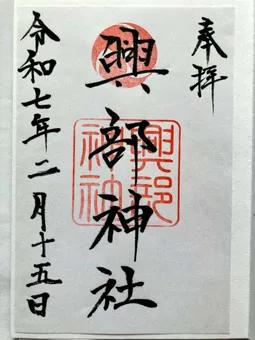 奉拝
興部神社
興部
神社
令和七年二月十五日